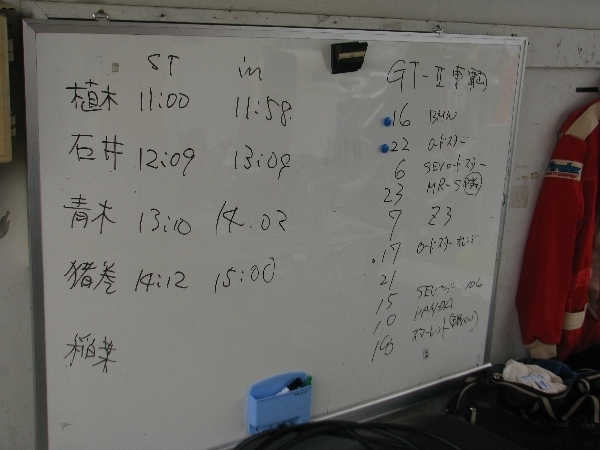 ST in
植木 11:00 11:58
石井 12:09 13:09
青木 13:10 14.02
猪巻 14:12 15:00
稲葉
GT-II車両
16 BMW
22 ロードスター
6 SEVロードスター
23 MR-S
7 Z3
17 ロードスター
21
15 SEV 106
10
16 スターレット